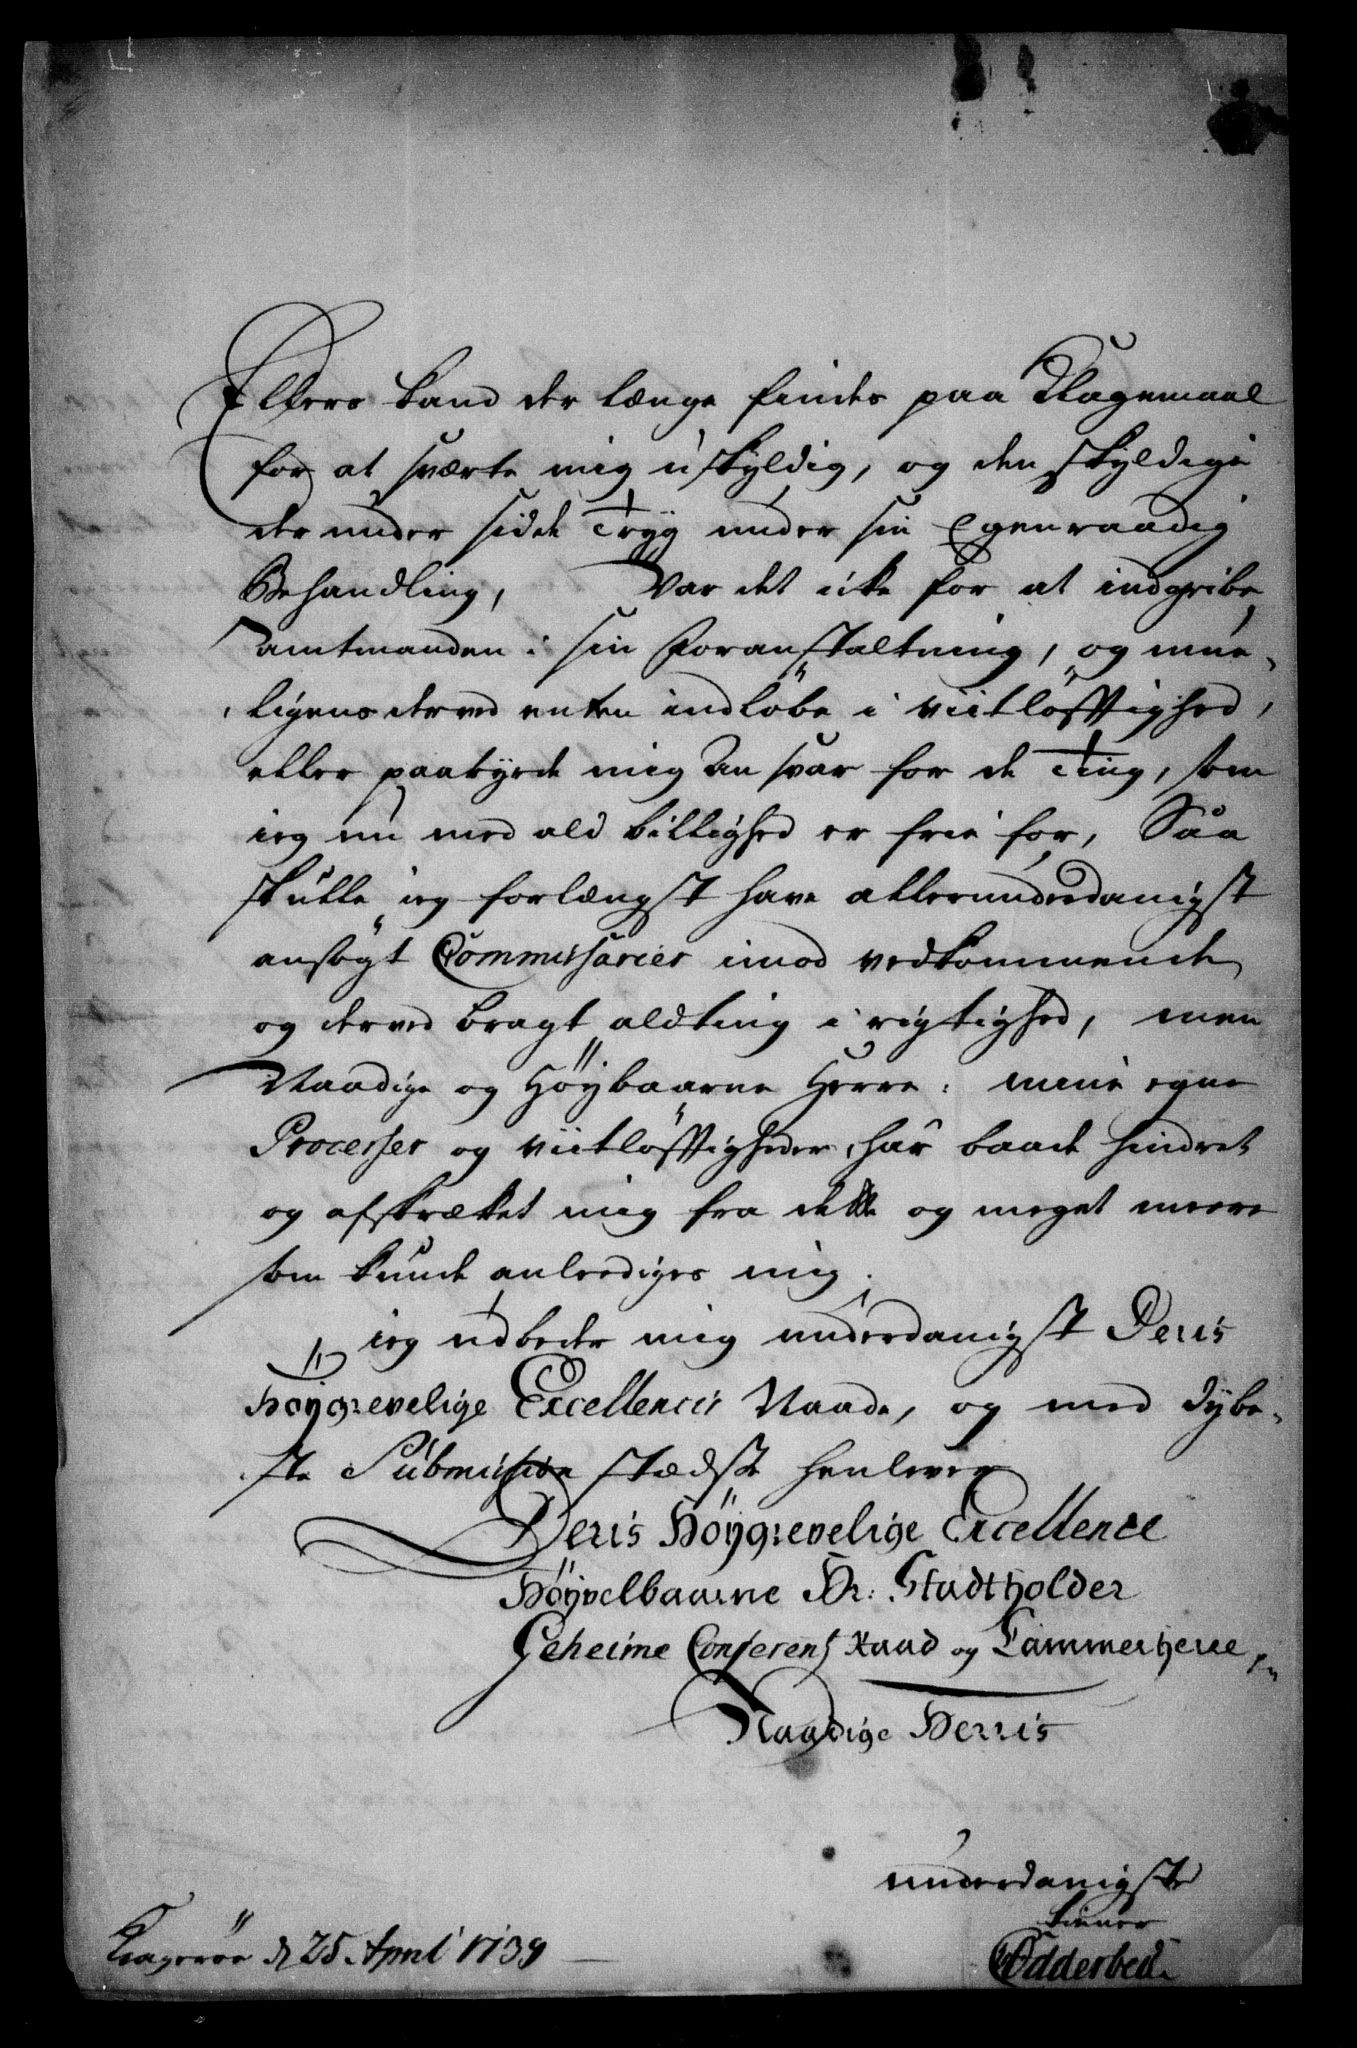 Ellers kand der længe findes paa Klagemaal
for at sværte mig uskyldig, og den skyldige
derunder sidde Tryg under sin Egenraadig
Behandling, Var det icke for at indgribe
Amtmanden i sin Foranstaltning, og mue-
ligens derved enten indløbe i viitløfftighed,
eller paabyrde mig Ansvar for de Ting, som
ieg nu med ald billighed er frie for, Saa
skulle ieg forlængst have allerunderdanigst
ansøgt Commissarier imod vedkommende
og derved bragt alting i rigtighed, men
Naadige og Høybaarne Herre: mine egne
Processer og viitløfftigheder, har baade hindret
og afskrækket mig fra dette og meget meere
som kunde anlediges mig.
ieg udbeder mig underdanigst Deris
Høygrevelige Excellences Naade, og med dybe-
ste Submission stædse henlever
Deris Høygrevelige Excellence
Høyvelbaarne Hr: Stadtholder
Geheime Conferentz Raad og Cammerherre
Naadige Herris
underdanigste
tienner
Odderbech
Kragerøe d 25. April 1739